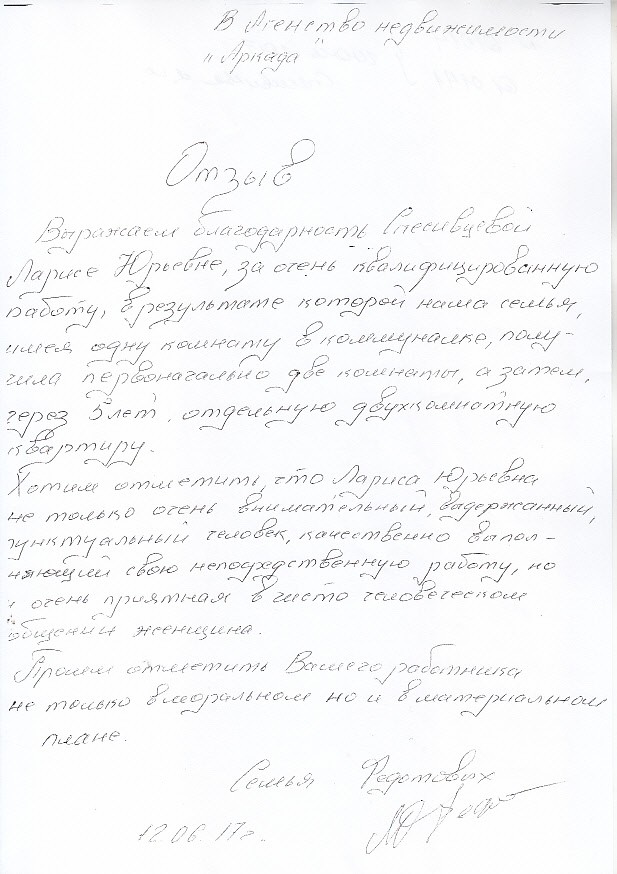 В Агенство недвижимости
"Аркада"
Отзыв
Выражаем благодарность Спесивцевой
Ларисе Юрьевне, за очень квалифицированную
работу, в результате которой наша семья,
имея одну комнату в коммуналке, полу-
чила первоначально две комнаты, а затем,
через 5 лет, отдельную двухкомнатную
квартиру.
Хотим отметить, что Лариса Юрьевна
не только очень внимательный, выдержанный,
пунктуальный человек, качественно выпол-
няющий свою непосредственную работу, но
и очень приятная в чисто человеческом
общении женщина.
Просим отметить Вашего работника
не только в моральном но и в материальном
плане.
Семья Федотовых
12.06.17г.